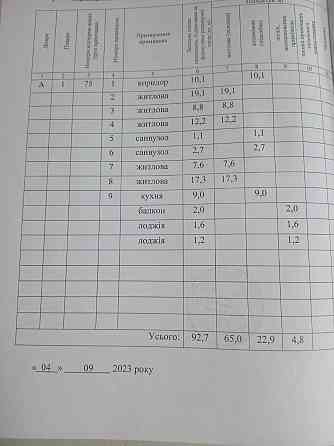 Літера
Поверх
Призначення приміщення
1 2 3 4 5 6 7 8 9 10
А 1 75 1 коридор 10,1 10,1
2 житлова 19,1 19,1
3 житлова 8,8 8,8
4 житлова 12,2 12,2
5 санвузол 1,1 1,1
6 санвузол 2,7 2,7
7 житлова 7,6 7,6
8 житлова 17,3 17,3
9 кухня 9,0 9,0
балкон 2,0 2,0
лоджія 1,6 1,6
лоджія 1,2 1,2
Усього: 92,7 65,0 22,9 4,8
« 04 » 09 2023 року